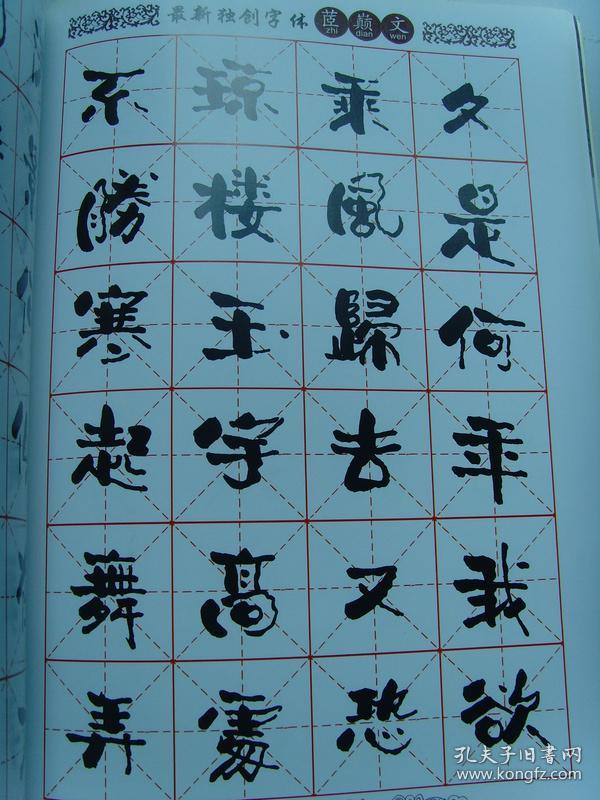 最新独创字体 茝巅文
zhi dian wen
夕是何年我欲
乘風歸去又恐
琼楼玉宇高處
不勝寒起舞弄
孔夫子旧書网
www.kongfz.com